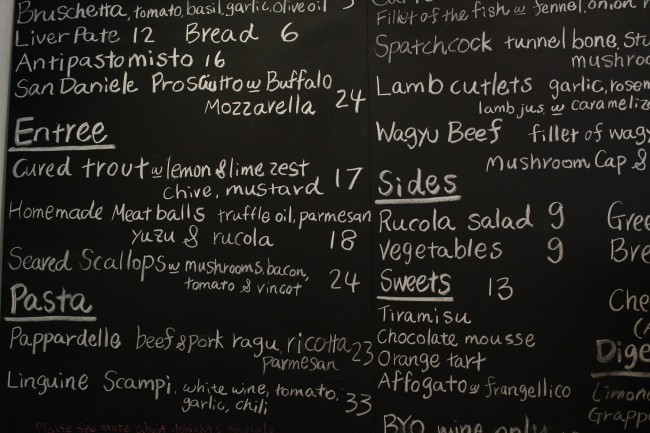 Bruschetta, tomato, basil, garlic, olive oil 5
Liver Pate 12 Bread 6
Antipastomisto 16
San Daniele Prosciutto w Buffalo
Mozzarella 24
Entree
Cured trout w lemon & lime zest
chive, mustard 17
Homemade Meatballs truffle oil, parmesan
yuzu & rucola 18
Seared Scallops w mushrooms, bacon,
tomato & vincot 24
Pasta
Pappardelle beef & pork ragu, ricotta
parmesan 23
Linguine Scampi, white wine, tomato,
garlic, chili 33
Please see more about tonight's
Fillet of the fish w fennel, onion
Spatchcock tunnel bone, Stu
mushroo
Lamb cutlets garlic, rosem
lamb jus, w carameliz
Wagyu Beef fillet of wag
Mushroom Cap &
Sides
Rucola salad 9
Vegetables 9
Sweets 13
Tiramisu
Chocolate mousse
Orange tart
Affogato w frangellico
BYO wine only
Gree
Bre
Che
(A
Dige
Limon
Grapp